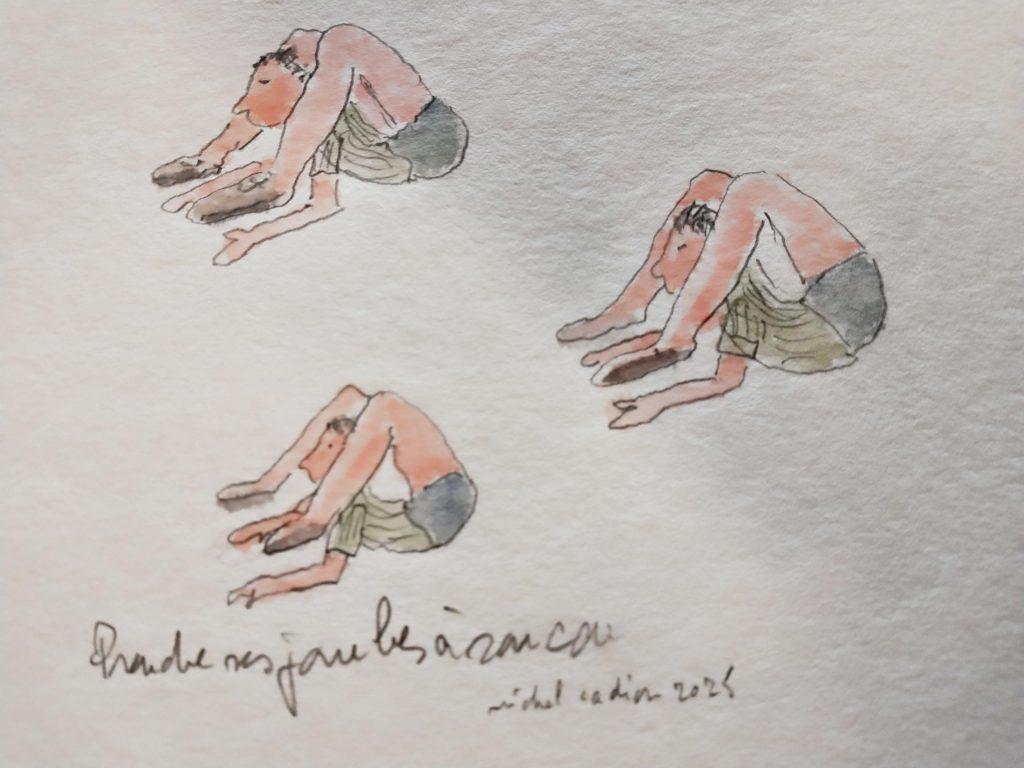 Prendre ses jambes à son cou
michel cadiou 2025